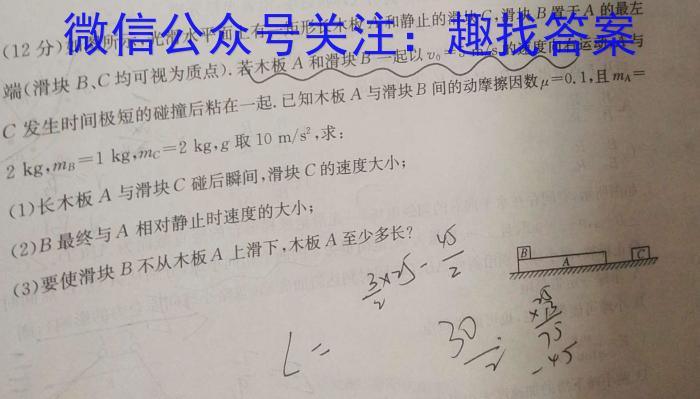 微信公众号关注：趣找答案
(12分)
和静止的滑块C,滑块B置于A的最左
端(滑块B、C均可视为质点).若木板A和滑块B一起以v₀=
m/s的速度向右运动,A与
C发生时间极短的碰撞后粘在一起.已知木板A与滑块B间的动摩擦因数μ=0.1,且mA=
2 kg,mB=1 kg,mC=2 kg,g取10 m/s²,求:
(1)长木板A与滑块C碰后瞬间,滑块C的速度大小;
(2)B最终与A相对静止时速度的大小;
(3)要使滑块B不从木板A上滑下,木板A至少多长?
B
A
C
3/2×25-45/2
L=
30/2
75
-45